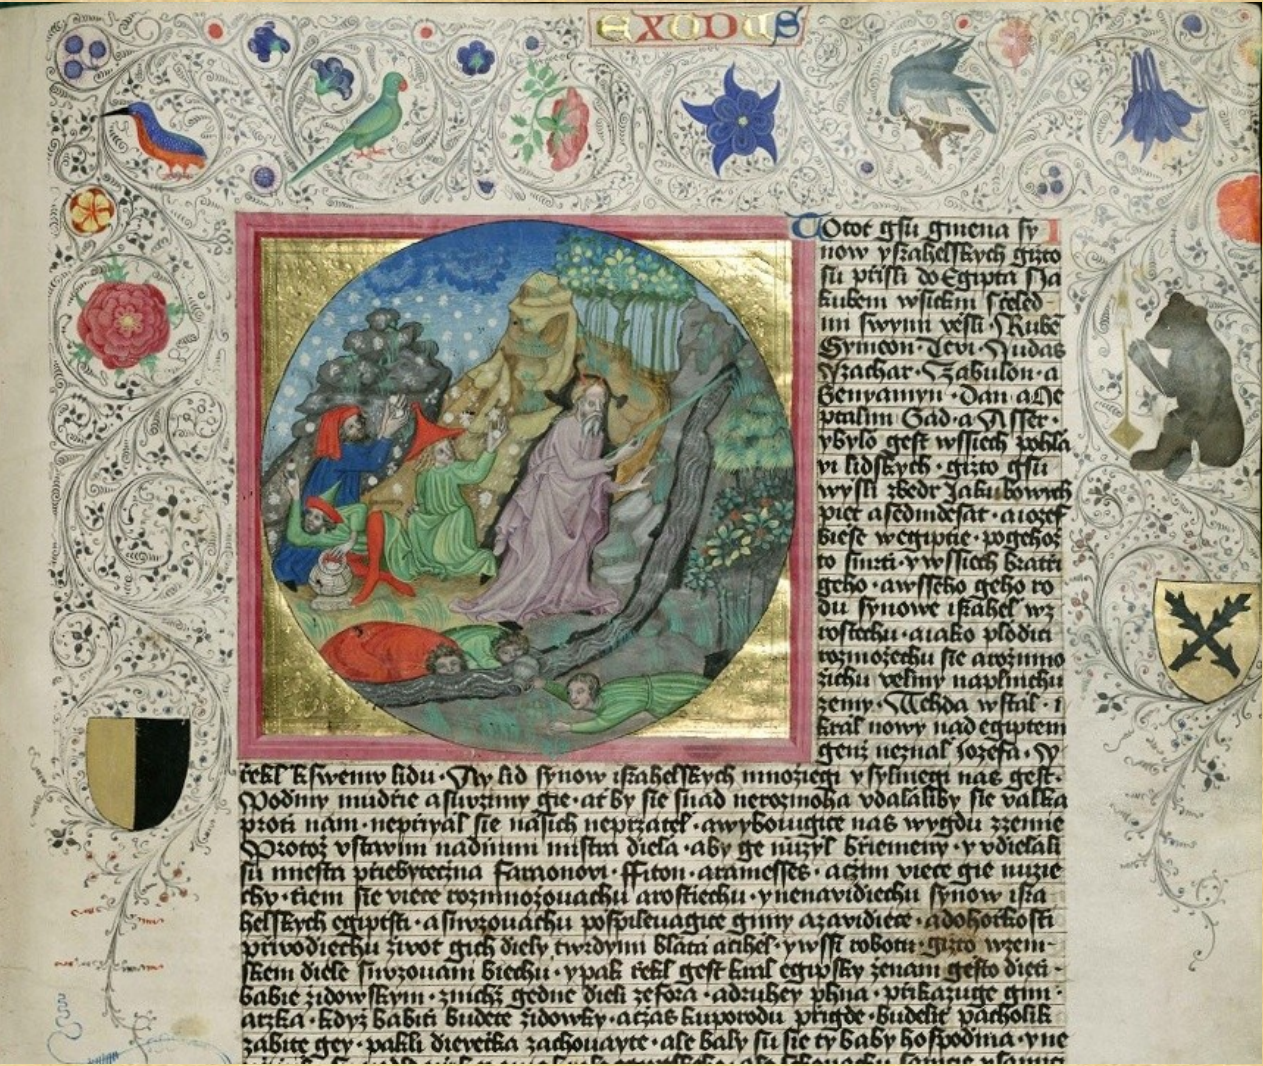 EXODUS
Totoť gsú gmena sy
now yzrahelských gižto
sú přišli do Egipta s Ja
kubem wšickni s čeled
mi swými vešli · Ruben
Symeon · Levi · Judas
Yzachar · Zabulon · a
Benyamyn · Dan · a Ne
ptalim Gad · a Asser ·
ybylo gest wssiech pohla
vi lidských · gižto gsú
wyšli z beder Jakubowých
pięt a sedmdesát · a iozef
bieše w egiptie · po gehož
to smrti · y wssiech bratří
geho · a wsseho geho ro
du synowe israhel wz
rostechu · a iako plodici
rozmožechu sie a rozmno
žichu velmy naplnichu
zemy · Wehda wstal · i
král nowy nad egiptem
genž neznal iozefa · Y
řekl k swemu lidu · Ay lid synow israhelských mnoziegi y sylniegi nas gest ·
Podmy mudřie a suzimy gie · ať by sie snad nerozmoha vdalaliby sie válka
proti nám · nepřiyal sie našich nepřátel · a wyboiugice nas wygdu z zemie
Protož vstavim nad nimi mistra diela · aby ge nuzyl břiemeny · y vdielali
sú miesta přiebytečna Faraonovi · Ffiton · a ramesses · a čim viece gie nuzie
chy · tiem sie viece rozmnožovachu a rostiechu · y nenavidiechu synow isra
helských egiptsti · a suzovachu posmievagice gimy a zavidiece · a do hořkosti
přivodiechu život gich diely twrdymi bláta a cihel · y wssi robotu · gižto w zem
skem diele suzovani biechu · y pak řekl gest král egipsky ženám gešto dieti
babie židowskym · z nichž gedne diechu zefora · a druhey phua · přikazuge gim ·
a řzka · když babiti budete židowky · a čas ku porodu přigde · budeli pacholik
zabite gey · pakli dievečka zachovayte · ale bály sú sie ty baby hospodina · y ne